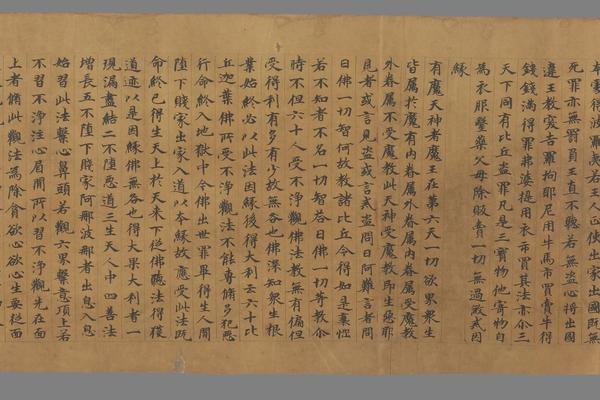 死罪亦無罰負王直不聽若無盗心將出國
違王教突吉羅拘耶尼用牛馬市買賣牛得
錢錢滿得罪弗婆提用衣市買其法亦尒三
天下同有比丘盗罪凡是三寶物他寄物自
為衣服醫藥父母除販賣一切無過戒因
緣
有魔天神者魔王在第六天一切欲界衆生
皆屬於魔有內眷屬外眷屬內眷屬受魔教
外眷屬不受魔教此天神受魔教即生惡耶
見者或言見盗或言盗問曰阿難言者問
曰佛一切智何故教諸比丘令得如是衰惱
若不知者不名一切智荅曰佛一切等教尒
時不但六十人受不淨觀佛法教無有偏但
受得利有多有少故無咎也佛深知衆生根
業始終必以此法因緣後得大利云六十比
丘迦葉佛所受不淨觀法不能專脩多犯惡
行命終入地獄中今佛出世罪畢得生人間
墮下賤家出家入道以本緣故應受此法既
命終已得生天上於天來下從佛聽法得獲
道迹以是因緣佛無咎也得大果大利者一
現漏盡結二不墮惡道三生天人中四善法
增長五不墮下賤家阿那波那者出息入息
始習此法繫心鼻頭若觀六界繫意頂上若
不習不淨注心眉間所以習不淨觀先在面
上者脩此觀法為除貪欲心欲心生要從面